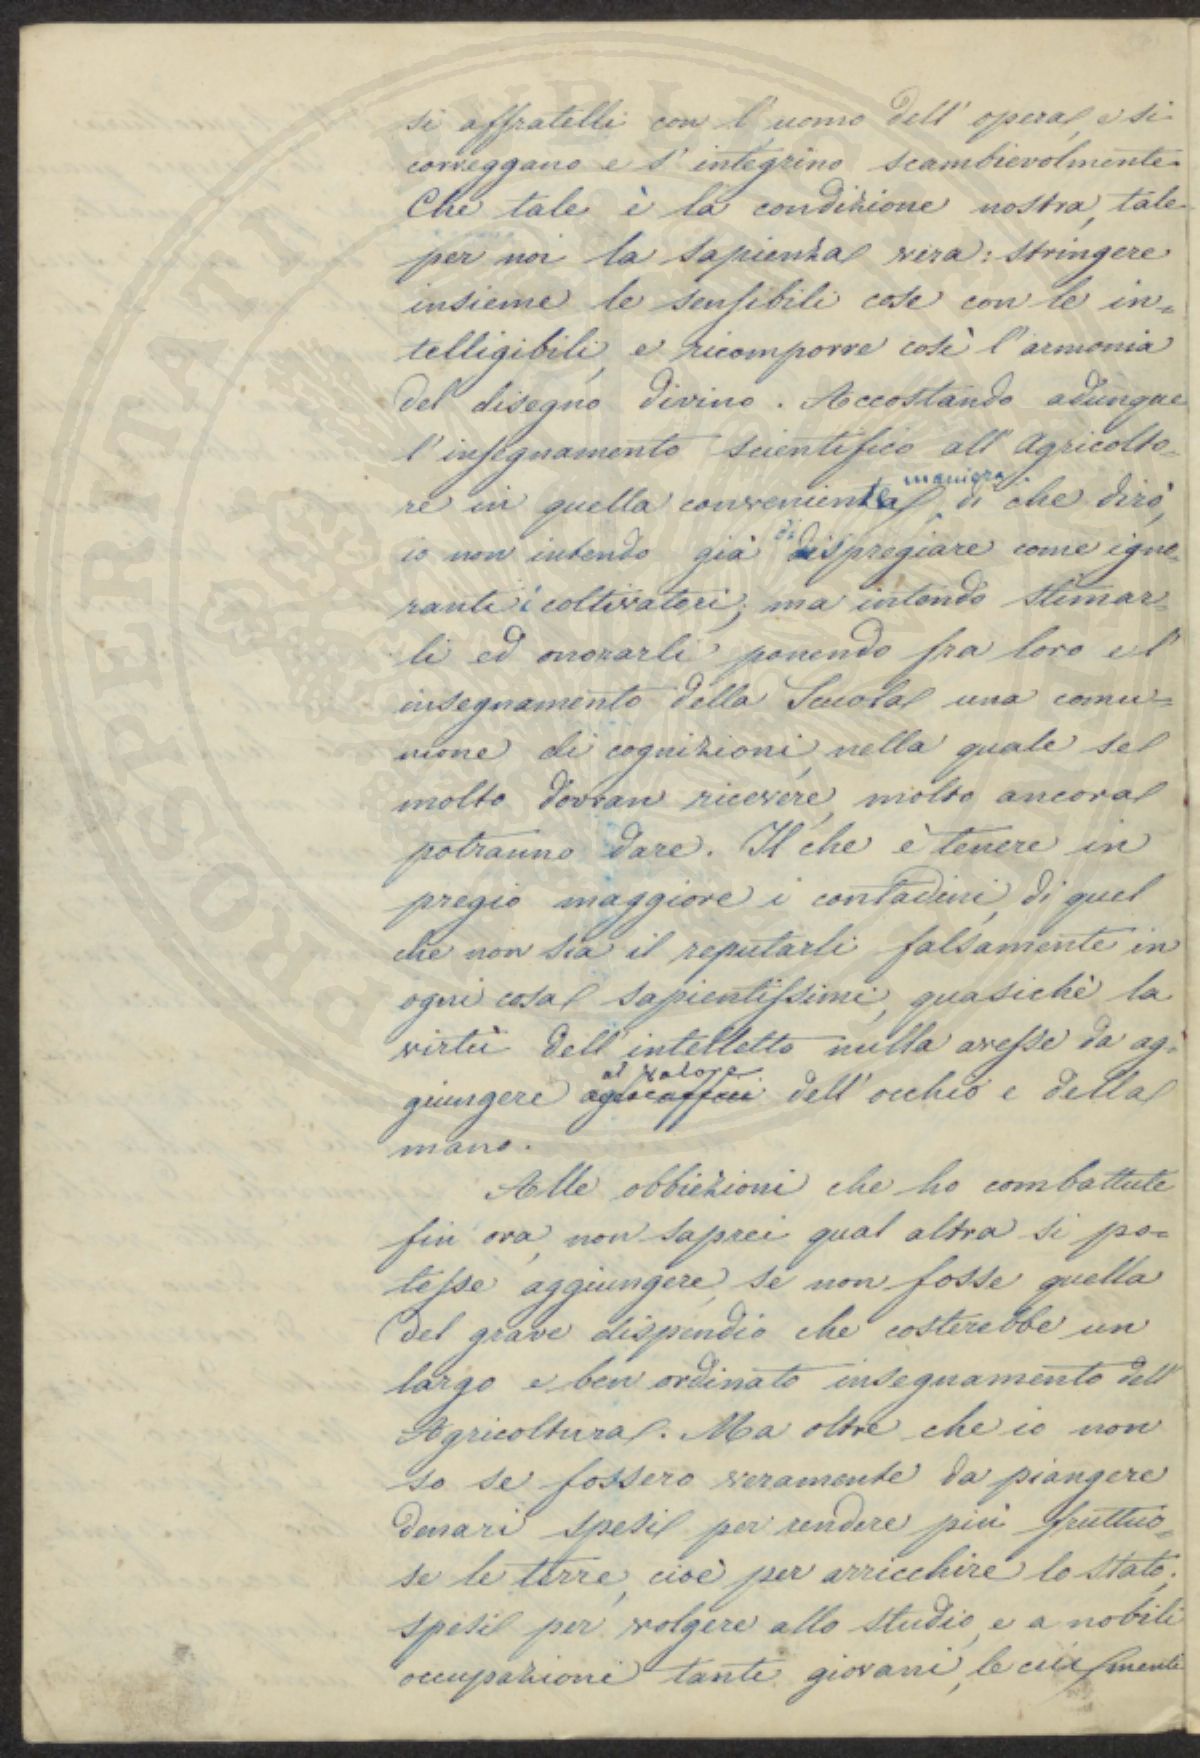 si affratelli con l'uomo dell'opera, e si
correggano e s'integrino scambievolmente.
Che tale è la condizione nostra, tale
per noi la sapienza vera: stringere
insieme le sensibili cose con le in=
telligibili, e ricomporre così l'armonia
del disegno divino. Accostando adunque
l'insegnamento scientifico all'Agricolto=
re in quella conveniente maniera, di che dirò,
io non intendo già di dispregiare come igno=
ranti i coltivatori; ma intendo stimar=
li ed onorarli ponendo fra loro e l'
insegnamento della Scuola una comu=
nione di cognizioni, nella quale se
molto dovran ricevere, molto ancora
potranno dare. Il che è tenere in
pregio maggiore i contadini, di quel
che non sia il reputarli falsamente in
ogni cosa sapientissimi, quasichè la
virtù dell'intelletto nulla avesse da ag=
giungere al valore dell'occhio e della
mano.
Alle obbiezioni che ho combattute
fin ora, non saprei qual altra si po=
tesse aggiungere, se non fosse quella
del grave dispendio che costerebbe un
largo e ben ordinato insegnamento dell'
Agricoltura. Ma oltre che io non
so se fossero veramente da piangere
denari spesi per rendere più fruttuo=
se le terre, cioè per arricchire lo stato;
spesi per volgere allo studio, e a nobili
occupazioni tanti giovani, le cui menti
PROSPERITATI PUBLICAE